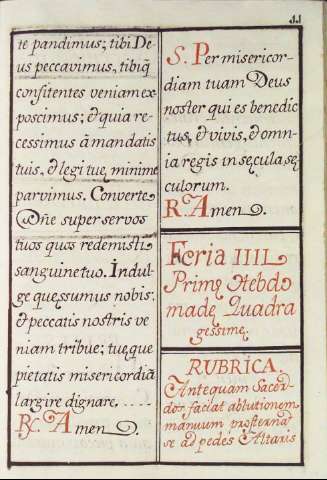 te pandimus; tibi De-
us peccavimus, tibiq̃
confitentes veniam ex-
poscimus; & quia re-
cessimus ã mandatis
tuis, & legi tuę minime
parvimus. Converte
Dñe super servos
tuos quos redemisti
sanguine tuo. Indul-
ge quęssumus nobis:
& peccatis nostris ve
niam tribue; tuęque
pietatis misericordiã
largire dignare. ....
R. Amen.
S. Per misericor-
diam tuam Deus
noster qui es benedic
tus, & vivis, & omn-
ia regis in sęcula sę
culorum.
R. Amen.
Feria IIII.
Primę Hebdo
madę Quadra
gessimę.
RUBRICA.
Antequam Sacer-
dos faciat ablutionem
manuum prosterna
se ad pedes Altaris